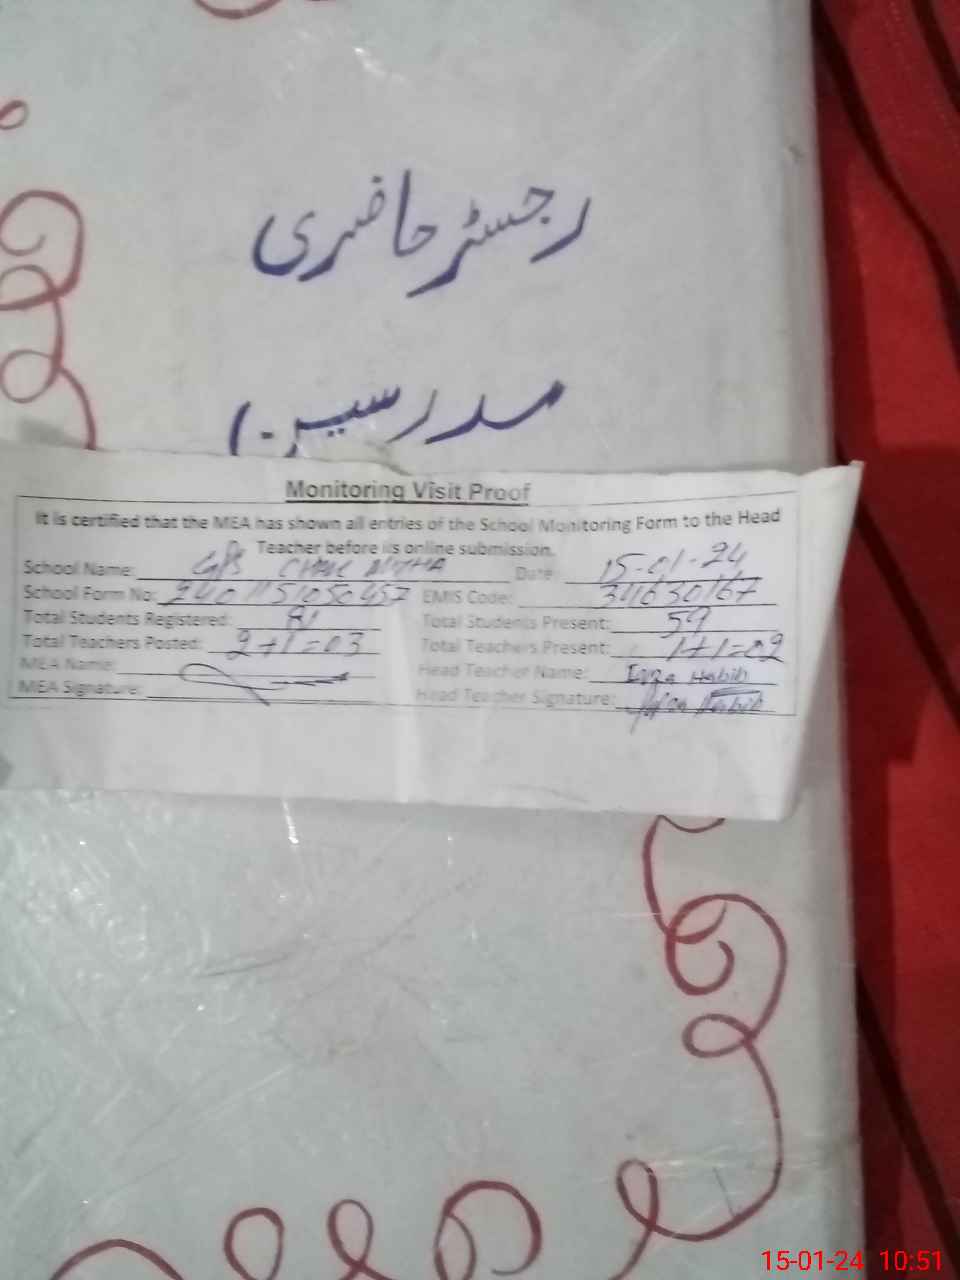 رجسٹر حاضری
مدرسین
Monitoring Visit Proof
It is certified that the MEA has shown all entries of the School Monitoring Form to the Head
Teacher before its online submission.
School Name: GPS CHAK Date: 15-01-24
School Form No: EMIS Code: 34630167
Total Students Registered: 81 Total Students Present: 59
Total Teachers Posted: 2+1=03 Total Teachers Present: 1+1=02
MEA Name: Head Teacher Name: Iqra Habib
MEA Signature: Head Teacher Signature: Iqra Habib
15-01-24 10:51